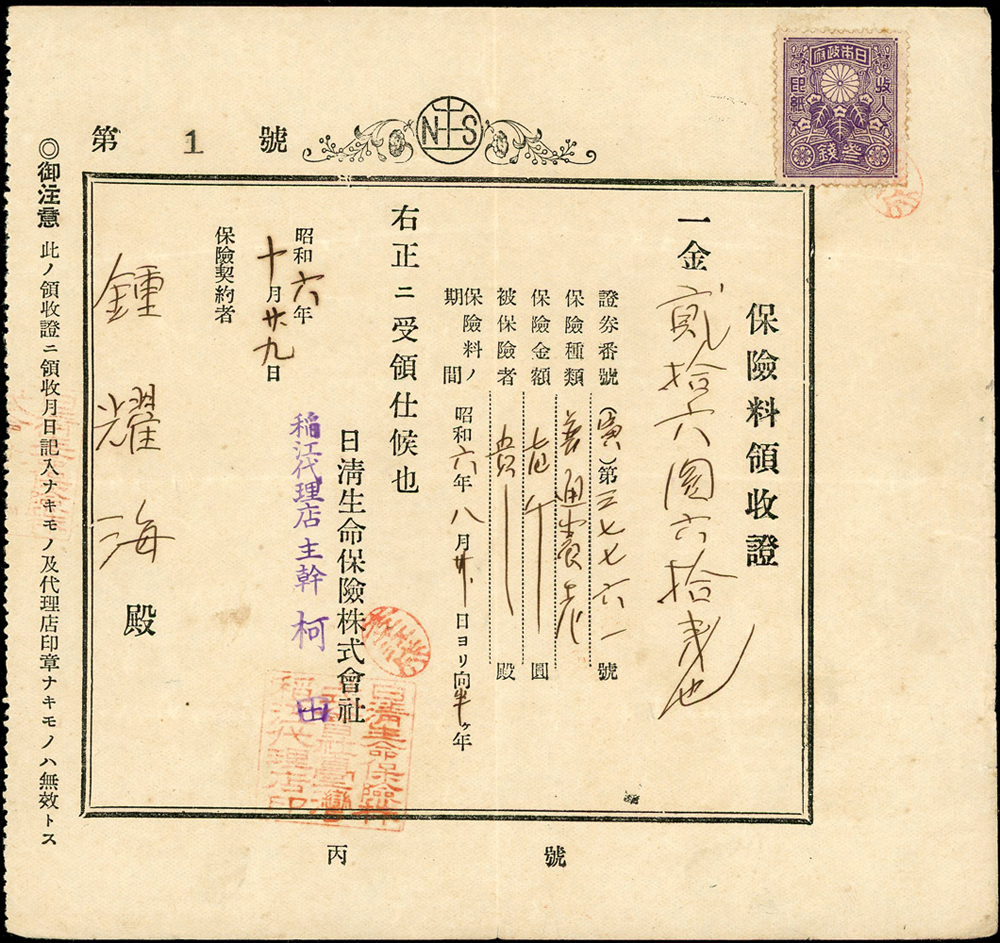 第 1 號
NS
日本政府
收入
印紙
叁錢
保險料領收證
一金貳拾六圓六拾
證券番號(寅)第三七七六一號
保險種類 普通養老
保險金額 壱千圓
被保險者 貴殿
保險料ノ期間 昭和六年八月廿日ヨリ向半ヶ年
右正ニ受領仕候也
昭和六年
十月廿九日
日清生命保險株式會社
稲江代理店主幹 柯
保險契約者
鍾耀海殿
◎御注意 此ノ領收證ニ領收月日記入ナキモノ及代理店印章ナキモノハ無效トス
丙 號